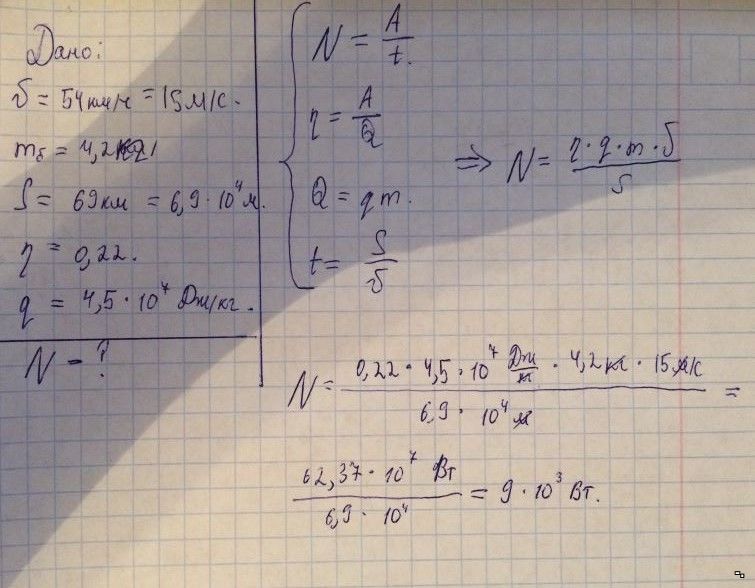 Дано:
v = 54 км/ч = 15 м/с.
mб = 4,2 кг
S = 69 км = 6,9 · 10⁴ м.
η = 0,22.
q = 4,5 · 10⁷ Дж/кг.
N - ?
N = A / t.
η = A / Q
Q = qm.
t = S / v
=> N = η · q · m · v / S
N = 0,22 · 4,5 · 10⁷ Дж/кг · 4,2 кг · 15 м/с / 6,9 · 10⁴ м =
62,37 · 10⁷ Вт / 6,9 · 10⁴ = 9 · 10³ Вт.